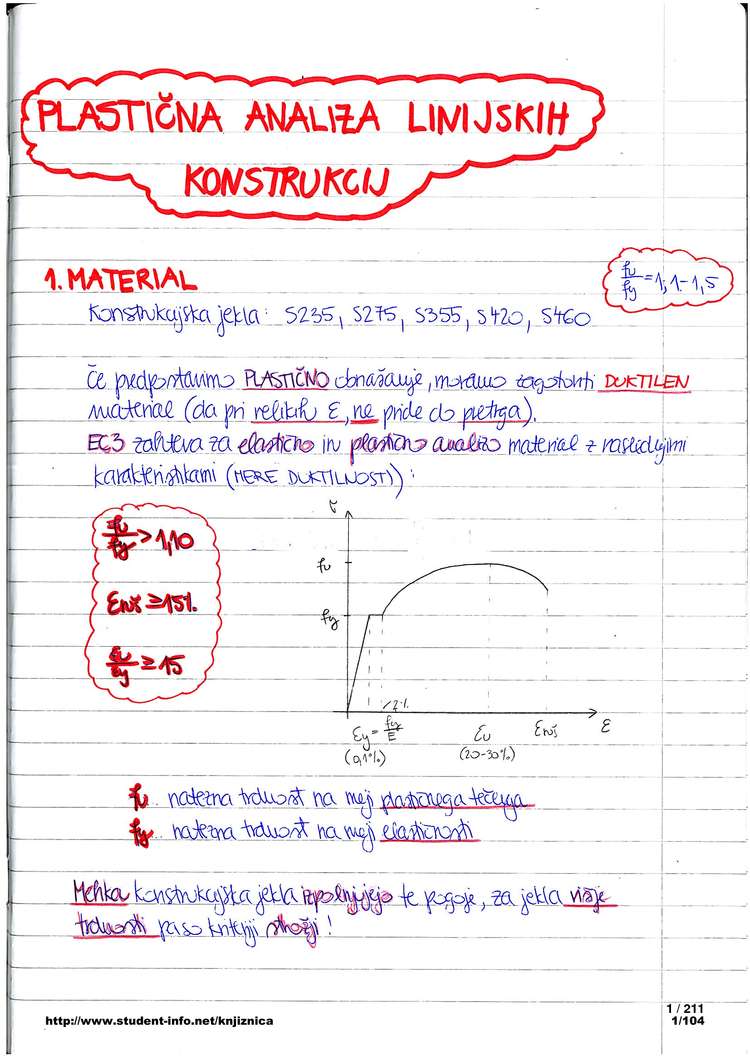 PLASTIČNA ANALIZA LINIJSKIH
KONSTRUKCIJ
1. MATERIAL
fu/fy = 1,1-1,5
Konstrukcijska jekla: S235, S275, S355, S420, S460
Če predpostavimo PLASTIČNO obnašanje, moramo zagotoviti DUKTILEN
material (da pri velikih ε, ne pride do pretrga).
EC3 zahteva za elastično in plastično analizo material z naslednjimi
karakteristikami (MERE DUKTILNOSTI):
fu/fy > 1,10
εruš ≥ 15%
εu/εy ≥ 15
σ
fu
fy
2%
εy = fy/E
(0,1%)
εu
(20-30%)
εruš
ε
fu... natezna trdnost na meji plastičnega tečenja
fy... natezna trdnost na meji elastičnosti
Mehka konstrukcijska jekla izpolnjujejo te pogoje, za jekla višje
trdnosti pa so kriteriji strožji!
1 / 211
http://www.student-info.net/knjiznica
1/104